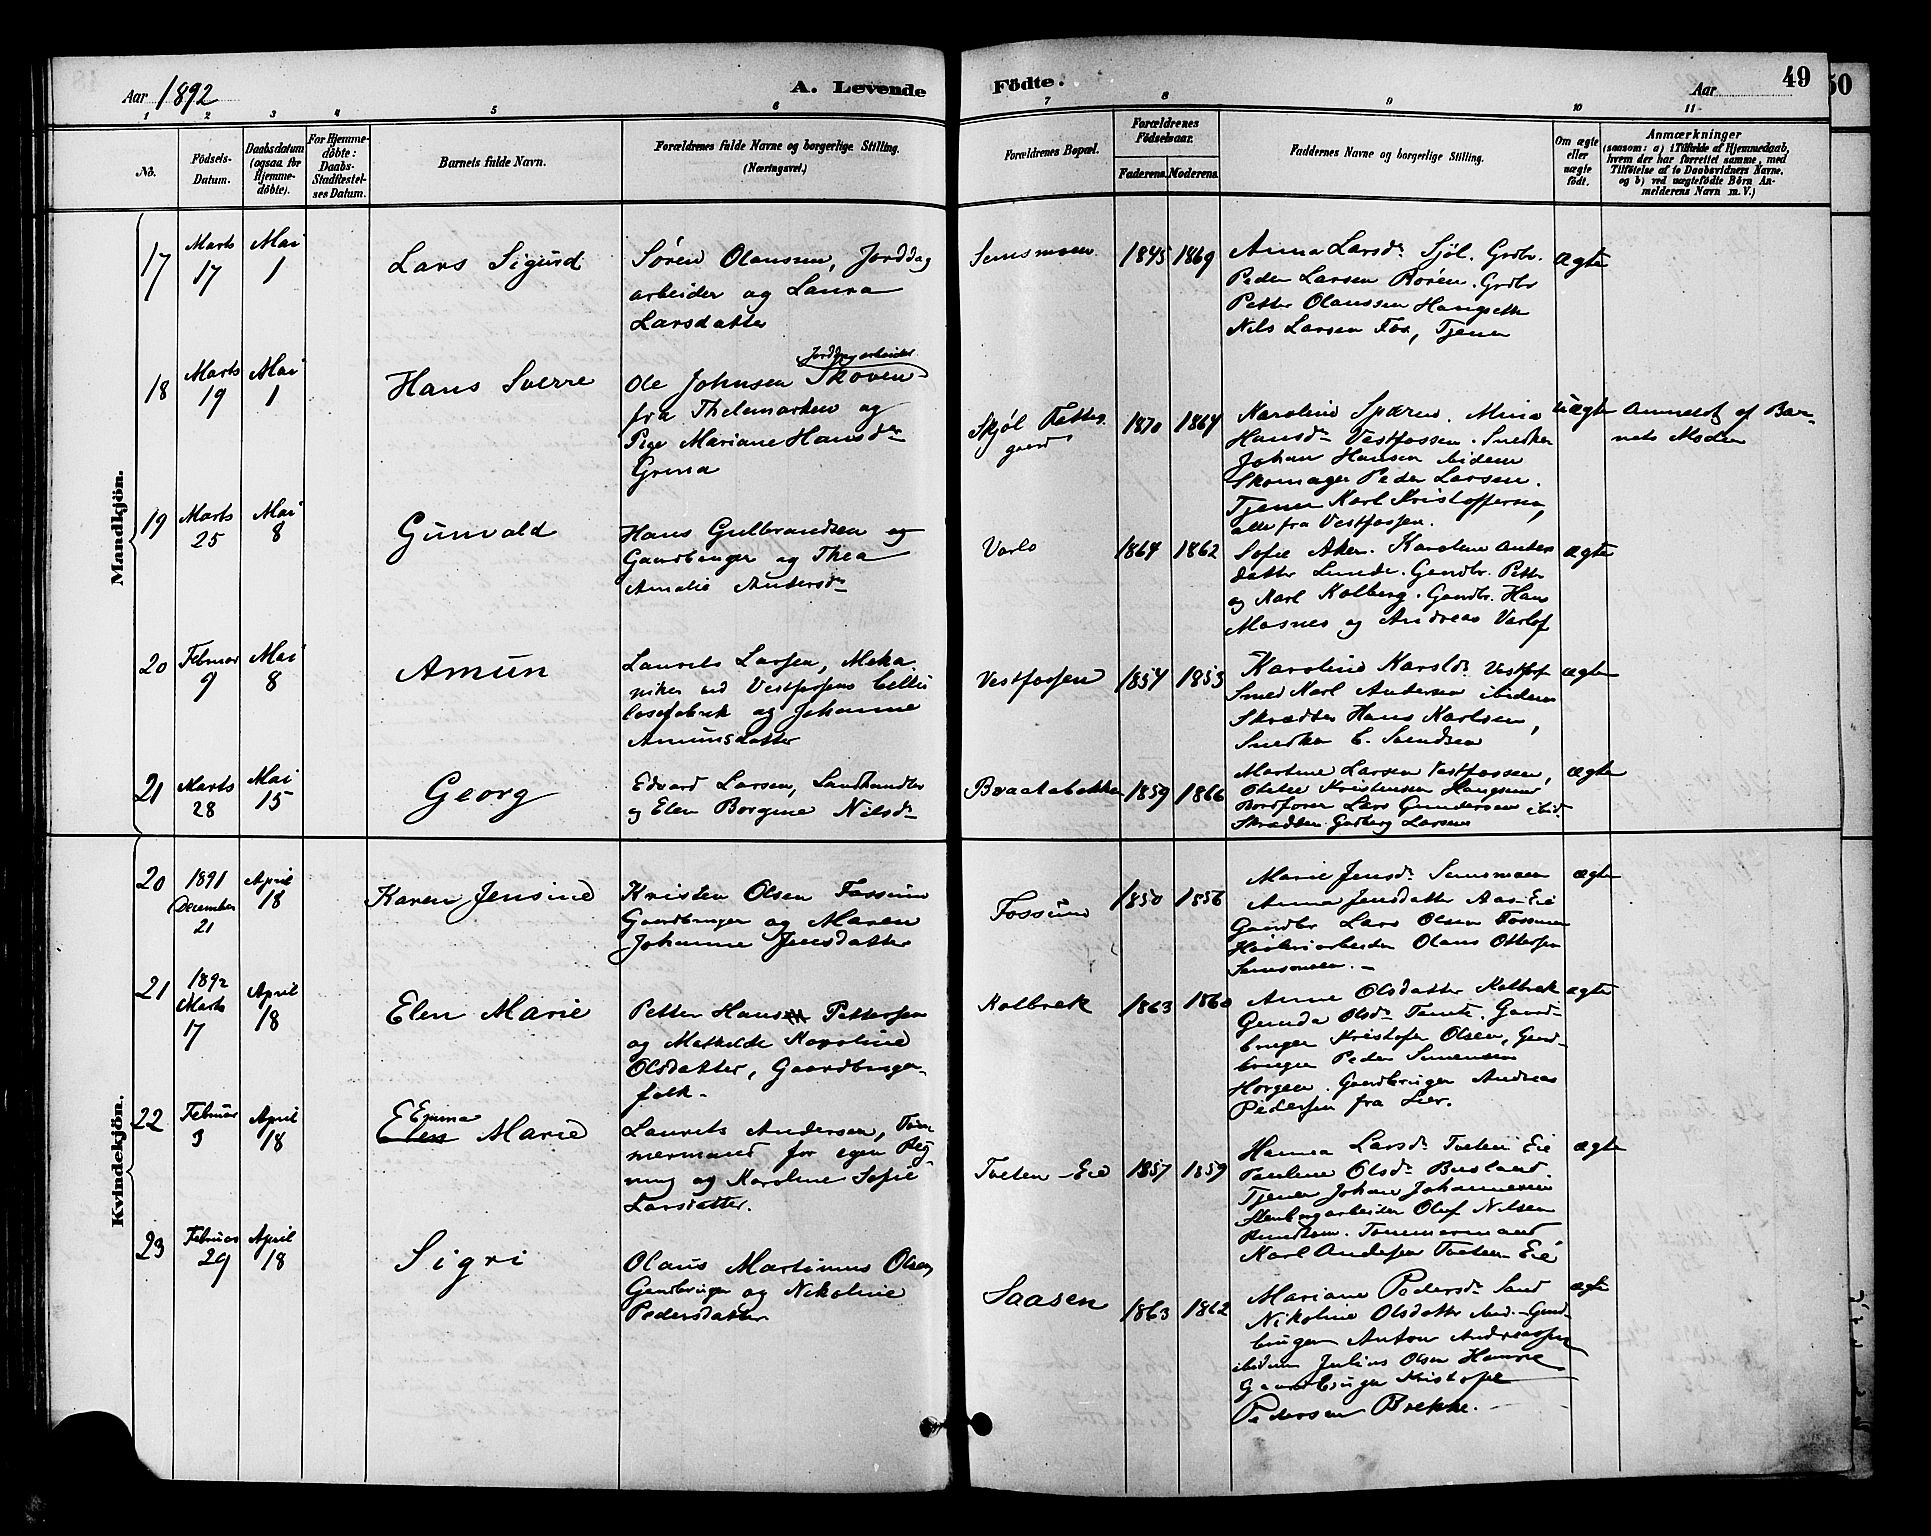 Aar 1892
A. Levende
Födte.
Aar
49
50
1 2 3 4 5 6 7 8 9 10 11
No.
Födsels-
Datum.
Daabsdatum
(ogsaa for
Hjemme-
döbte).
For Hjemme-
döbte:
Daabs-
Stadfæstel-
ses Datum.
Barnets fulde Navn.
Forældrenes fulde Navne og borgerlige Stilling.
(Næringsvei.)
Forældrenes Bopæl.
Forældrenes
Födselsaar.
Faderens. Moderens.
Faddernes Navne og borgerlige Stilling.
Om ægte
eller
uægte
födt.
Anmærkninger
(saasom: a) i Tilfælde af Hjemmedaab,
hvem der har forrettet samme, med
Tilföielse af to Daabsvidners Navne,
og b) ved uægtefödte Börn An-
melderens Navn m. V.)
Mandkjön.
17
Marts
17
Mai
1
Lars Sigurd
Søren Olaussen, Jorddag
arbeider og Laura
Larsdatter
Semsmoen
1845 1869
Anna Larsdr Sjöl. Grdbr.
Peder Larsen Roren. Grdbr
Petter Olaussen Haugseth
Nils Larsen Fos, Tjener
ægte
18
Marts
19
Mai
1
Hans Sverre
Jorddagarbeider
Ole Johnsen Skoven
fra Thelemarken og
Pige Mariane Hansdr
Grena
Skjöl Fattig
gaard
1870 1864
Karoline Sparen. Mina
Hansdr Vestfossen. Snedker
Johan Hansen ibidem
Skomager Peder Larsen.
Tjener Karl Kristoffersen,
alle fra Vestfossen.
uægte
Anmeldt af Bar-
nets Moder
19
Marts
25
Mai
8
Gunvald
Hans Gulbrandsen og
Gaardbruger og Thea
Amalie Andersdr
Varlo
1864 1862
Sofie Aker. Karoline Anders
datter Lunde. Gaardbr. Petter
og Karl Kolberg. Gaardbr. Hans
Masnes og Andreas Varlof
ægte
20
Februar
9
Mai
8
Amun
Laurits Larsen, Meka
niker ved Vestfossens Cellu
losefabrik og Johanne
Amunsdatter
Vestfossen
1854 1853
Karoline Karlsdr Vestfos
Smed Karl Andersen ibidem
Skrædder Hans Karlsen,
Snedker C. Svendsen
ægte
21
Marts
28
Mai
15
Georg
Edvard Larsen, Landhandler
og Elen Borgine Nilsdr
Braatabakken
1859 1866
Martine Larsen Vestfossen,
Kristensen Haugsund
Bordforer Lars Gundersen ibid.
Skrædder Gudberg Larsen
ægte
Kvindekjön.
20
1891
December
21
April
18
Karen Jensine
Kristen Olsen Fossum
Gaardbruger og Maren
Johanne Jensdatter
Fossum
1850 1856
Marie Jensdr Semsmoen
Anna Jensdatter Aas-Eie
Gaardbr Lars Olsen Fossum
Olaus Ottersen
Semsmoen. –
ægte
21
1892
Marts
17
April
18
Elen Marie
Petter Hans Pettersen
og Mathilde Karoline
Olsdatter, Gaardbruger-
folk.
Kolbrek
1863 1860
Anne Olsdatter Kolbrek
Gunda Olsdr Temte. Gaard-
bruger Kristofer Olsen, Gaard-
bruger Peder Simensen
Horgen. Gaardbruger Andreas
Pedersen fra Lier.
ægte
22
Februar
3
April
18
Emma
Elen Marie
Laurits Andersen, Töm
mermand for egen Reg-
ning og Karoline Sofie
Larsdatter.
Tveten-Eie
1857 1859
Hanna Larsdr Tveten Eie
Pauline Olsdr Busland.
Tjener Johan Johannesen
Stenbergarbeider Olaf Nilsen
Tømmermand
Karl Andersen Tveten Eie
ægte
23
Februar
29
April
18
Sigri
Olaus Martinius Olsen,
Gaardbruger og Nikoline
Pedersdatter
Saasen
1863 1862
Mariane Pedersdr Sand
Nikoline Olsdatter Sand. Gaard-
bruger Anton Andreassen
ibidem Julius Olsen Hamre
Gaardbruger Kristofer
Pedersen Brekke.
ægte